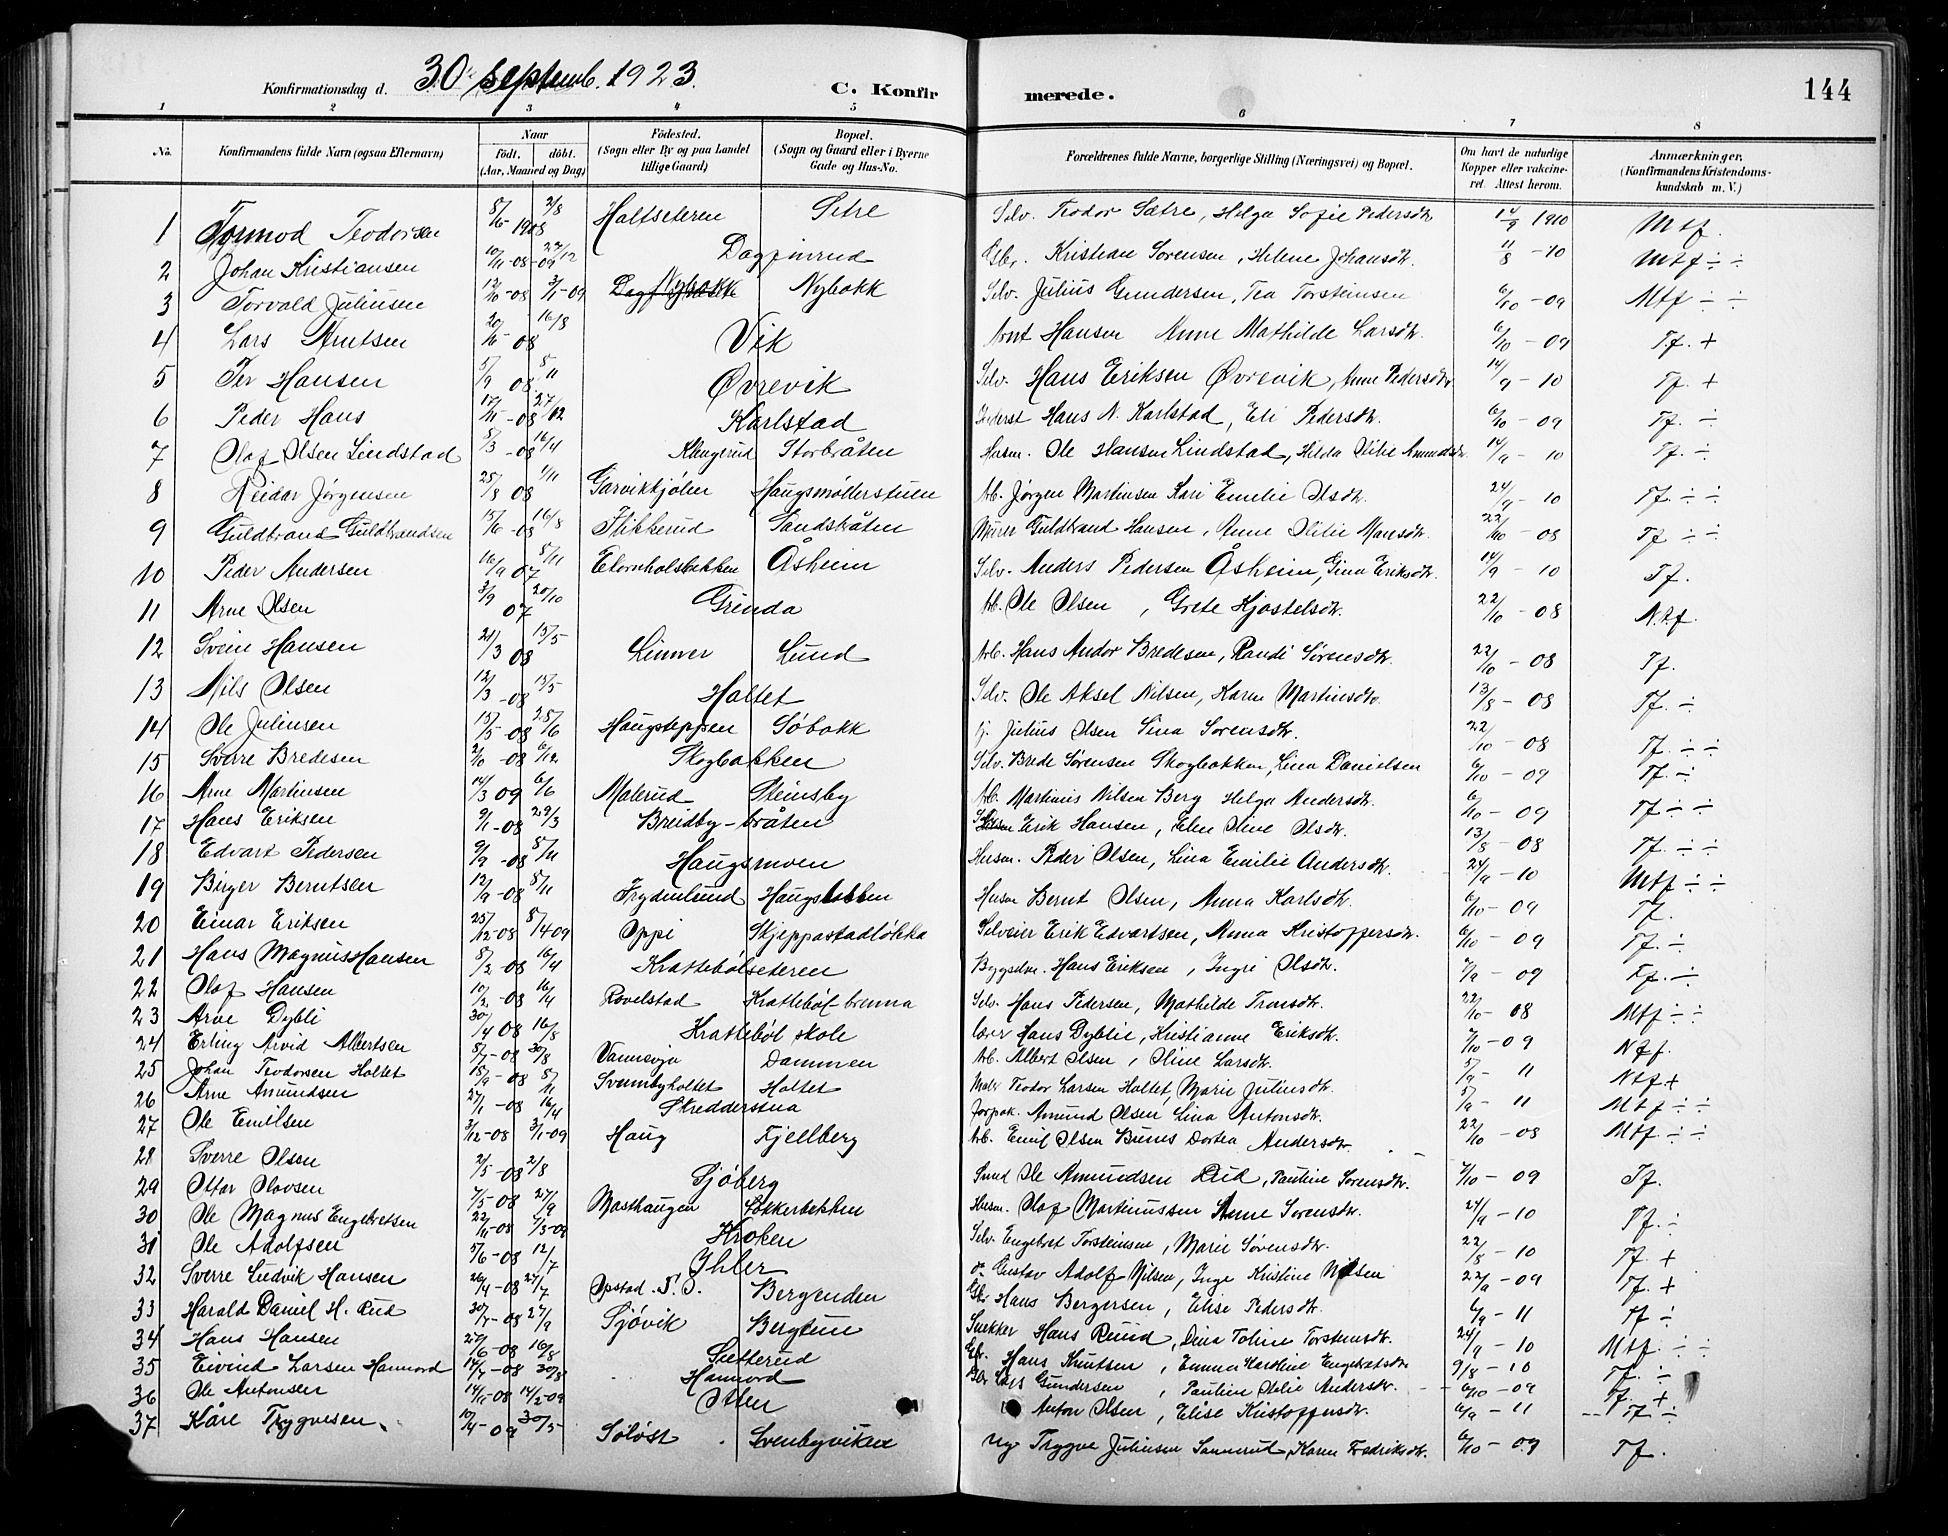 Konfirmationsdag d. 30 septemb. 1923. C. Konfirmerede. 144
1 2 3 4 5 6 7 8
No. Konfirmandens fulde Navn (ogsaa Efternavn) Naar født. døbt. (Aar, Maaned og Dag) Fødested. (Sogn eller By og paa Landet tillige Gaard) Bopæl. (Sogn og Gaard eller i Byerne Gade og Hus-No. Forældrenes fulde Navne, borgerlige Stilling (Næringsvei) og Bopæl. Om havt de naturlige Kopper eller vakcineret. Attest herom. Anmærkninger. (Konfirmandens Kristendomskundskab m. V.)
1 Tormod Teodorsen 1908 2/8 Haltseteren Setre Selv. Teodor Sætre, Helga Sofie Pedersdtr. 14/9 1910 Mtf.
2 Johan Kristiansen 10/11-08 27/12 Dagfinrud Gbr. Kristian Sorensen, Helene Johansdtr. 11/8-10 Mtf ÷ ÷
3 Torvald Juliusen 12/10-08 3/1-09 Nybakk Nybakk Selv. Julius Gundersen, Tea Torsteinsen 6/10-09 Mtf ÷ ÷
4 Lars Arntsen 08 16/8 Vik Arnt Hansen Anne Mathilde Larsdtr. 6/10-09 Tf. +
5 Per Hansen 5/9 08 8/11 Øvrevik Selv. Hans Eriksen Øvrevik, Anne Pedersdtr. 14/9-10 Tf. +
6 Peder Hans 17/11-08 27/12 Karlstad Hans N. Karlstad, Eli Pedersdtr. 6/10-09 Tf. ÷
7 Olaf Olsen Lindstad 8/3-08 16/4 Klengerud Storbråten Husm. Ole Hansen Lindstad, Hilda Olilie Amundsdtr. 14/9-10 Tf. ÷
8 Reidar Jørgensen 25/8 08 1/11 Garvikkjølen Haugsmølterstuen Arb. Jørgen Martinsen Kari Emelie Olsdtr. 24/9-10 Tf. ÷ ÷
9 Guldbrand Guldbrandsen 15/6-08 16/8 Flikkerud Sandskåten Murer Guldbrand Hansen, Anne Olilie Hansdtr. 22/10-08 Tf ÷ ÷
10 Peder Andersen 16/9 07 8/11 Ekornholsbekken Åsheim Selv. Anders Pedersen Åsheim, Gina Eriksdtr. 14/9-10 Tf.
11 Arne Olsen 3/9 07 20/10 Grinda Arb. Ole Olsen, Grete Hjostelsdtr. 22/10-08 Ntf.
12 Svein Hansen 21/3 08 15/5 Linner Lund Arb. Hans Andor Bredesen, Randi Sørensdtr. 22/10-08 Tf.
13 Nils Olsen 12/3-08 15/5 Haltet Selv. Ole Aksel Nilsen, Karen Martinsdtr. 13/8-08 Tf. ÷
14 Ole Juliusen 15/5-08 25/6 Haugseppen Søbakk Julius Olsen Lina Sorensdtr. 22/10-08 Tf. ÷ ÷
15 Sverre Bredesen 2/10-08 6/12 Skogbakken Selv. Brede Sørensen Skogbakken, Lina Danielsen 6/10-09 Tf. ÷
16 Arne Martinsen 14/3 09 6/6 Malerud Steinsby Arb. Martinus Nilsen Berg Helga Andersdtr. 6/10-09 Tf ÷ ÷
17 Hans Eriksen 9/1-08 29/3 Breidby-bråten Erik Hansen, Elen Oline Olsdtr. 13/8-08 Tf. ÷ ÷
18 Edvart Pedersen 9/9-08 8/11 Haugsmoen Husm. Peder Olsen, Lina Emilie Andersdtr. 24/9-10 Mtf ÷ ÷
19 Birger Berntsen 12/9-08 8/11 Frydenlund Haugsbakken Husm Bernt Olsen, Anna Karlsdtr. 6/10-09 Tf.
20 Einar Eriksen 25/12-08 8/4 09 Oppi Skjeppastadløkka Selveier Erik Edvartsen, Anna Kristoffersdtr. 6/10-09 Tf. ÷
21 Hans Magnus Hansen 8/2-08 16/4 Krattebølseteren Byggselv. Hans Eriksen, Ingri Olsdtr. 9/9-09 Tf. ÷
22 Olaf Hansen 10/2-08 16/4 Rovelstad Krattebøl brenna Selv. Hans Pedersen, Mathilde Tronsdtr. 22/10-08 Mtf ÷ ÷
23 Arne Dybli 30/4 08 16/8 Krattebøl skole Lærer Hans Dyblie, Kristianne Eriksdtr. 9/10-09 Ntf.
24 Erling Arvid Albertsen 5/7-08 30/8 Vannsoja Dammen Arb. Albert Olsen, Oline Larsdtr. 5/9-11 Ntf +
25 Johan Teodorsen Holtet 15/9-08 8/11 Svenbyholtet Holtet Maler Teodor Larsen Holtet, Marie Juliusdtr. 5/9-11 Mtf ÷ ÷
26 Arne Amundsen 27/1-08 16/4 Skredderstua Forpak. Amund Olsen Lina Antonsdtr. 22/10-08 Mtf ÷ ÷
27 Ole Emilsen 3/12-08 3/1-09 Haug Fjellberg Arb. Emil Olsen Bunes Dortea Andersdtr.
28 Sverre Olsen 2/5-08 2/8 Sjøberg Smed Ole Amundsen Rud, Pauline Sorensdtr. 9/10-09 Tf.
29 Ottar Olovsen 7/5-08 27/9 Masthaugen Løkkerbekken Husm. Olaf Martinussen Anne Sorensdtr. 24/9-10 Tf. ÷
30 Ole Magnus Engebretsen 22/11-08 7/3-09 Kroken Selv. Engebret Torsteinsen, Marie Sørensdtr. 22/8-10 Tf. +
31 Ole Adolfsen 5/6-08 12/7 Ihler Gustav Adolf Nilsen, Inge Kristine Nilsen 22/9-09 Tf. +
32 Sverre Ludvik Hansen 26/4-08 27/7 Opstad Ø.T. Bergenden Gbr Hans Bergersen, Elise Pedersdtr. 6/9-11 Tf ÷
33 Harald Daniel H. Rud 30/7-08 27/9 Sjøvik Bergtun Snekker Hans Ruud, Dina Toline Torsteinsdtr. 24/9-10 Mtf. ÷ ÷
34 Hans Hansen 27/6-08 16/8 Sætterud Gbr. Hans Knutsen, Emma Karoline Engebretsdtr 9/8-10 Tf. ÷
35 Eivind Larsen Hannord 14/7-08 30/8 Hannord Gbr Lars Gundersen, Pauline Olilie Andersdtr. 6/10-09 Tf. +
36 Ole Antonsen 14/11-08 14/2-09 Otten Anton Olsen, Elise Kristoffersdtr. 6/9-11 Tf ÷
37 Kåre Trygvesen 10/4-09 30/5 Søløst Svenbyviken Trygve Juliusen Sannerud, Karen Fredriksdtr. 6/10-09 Tf.